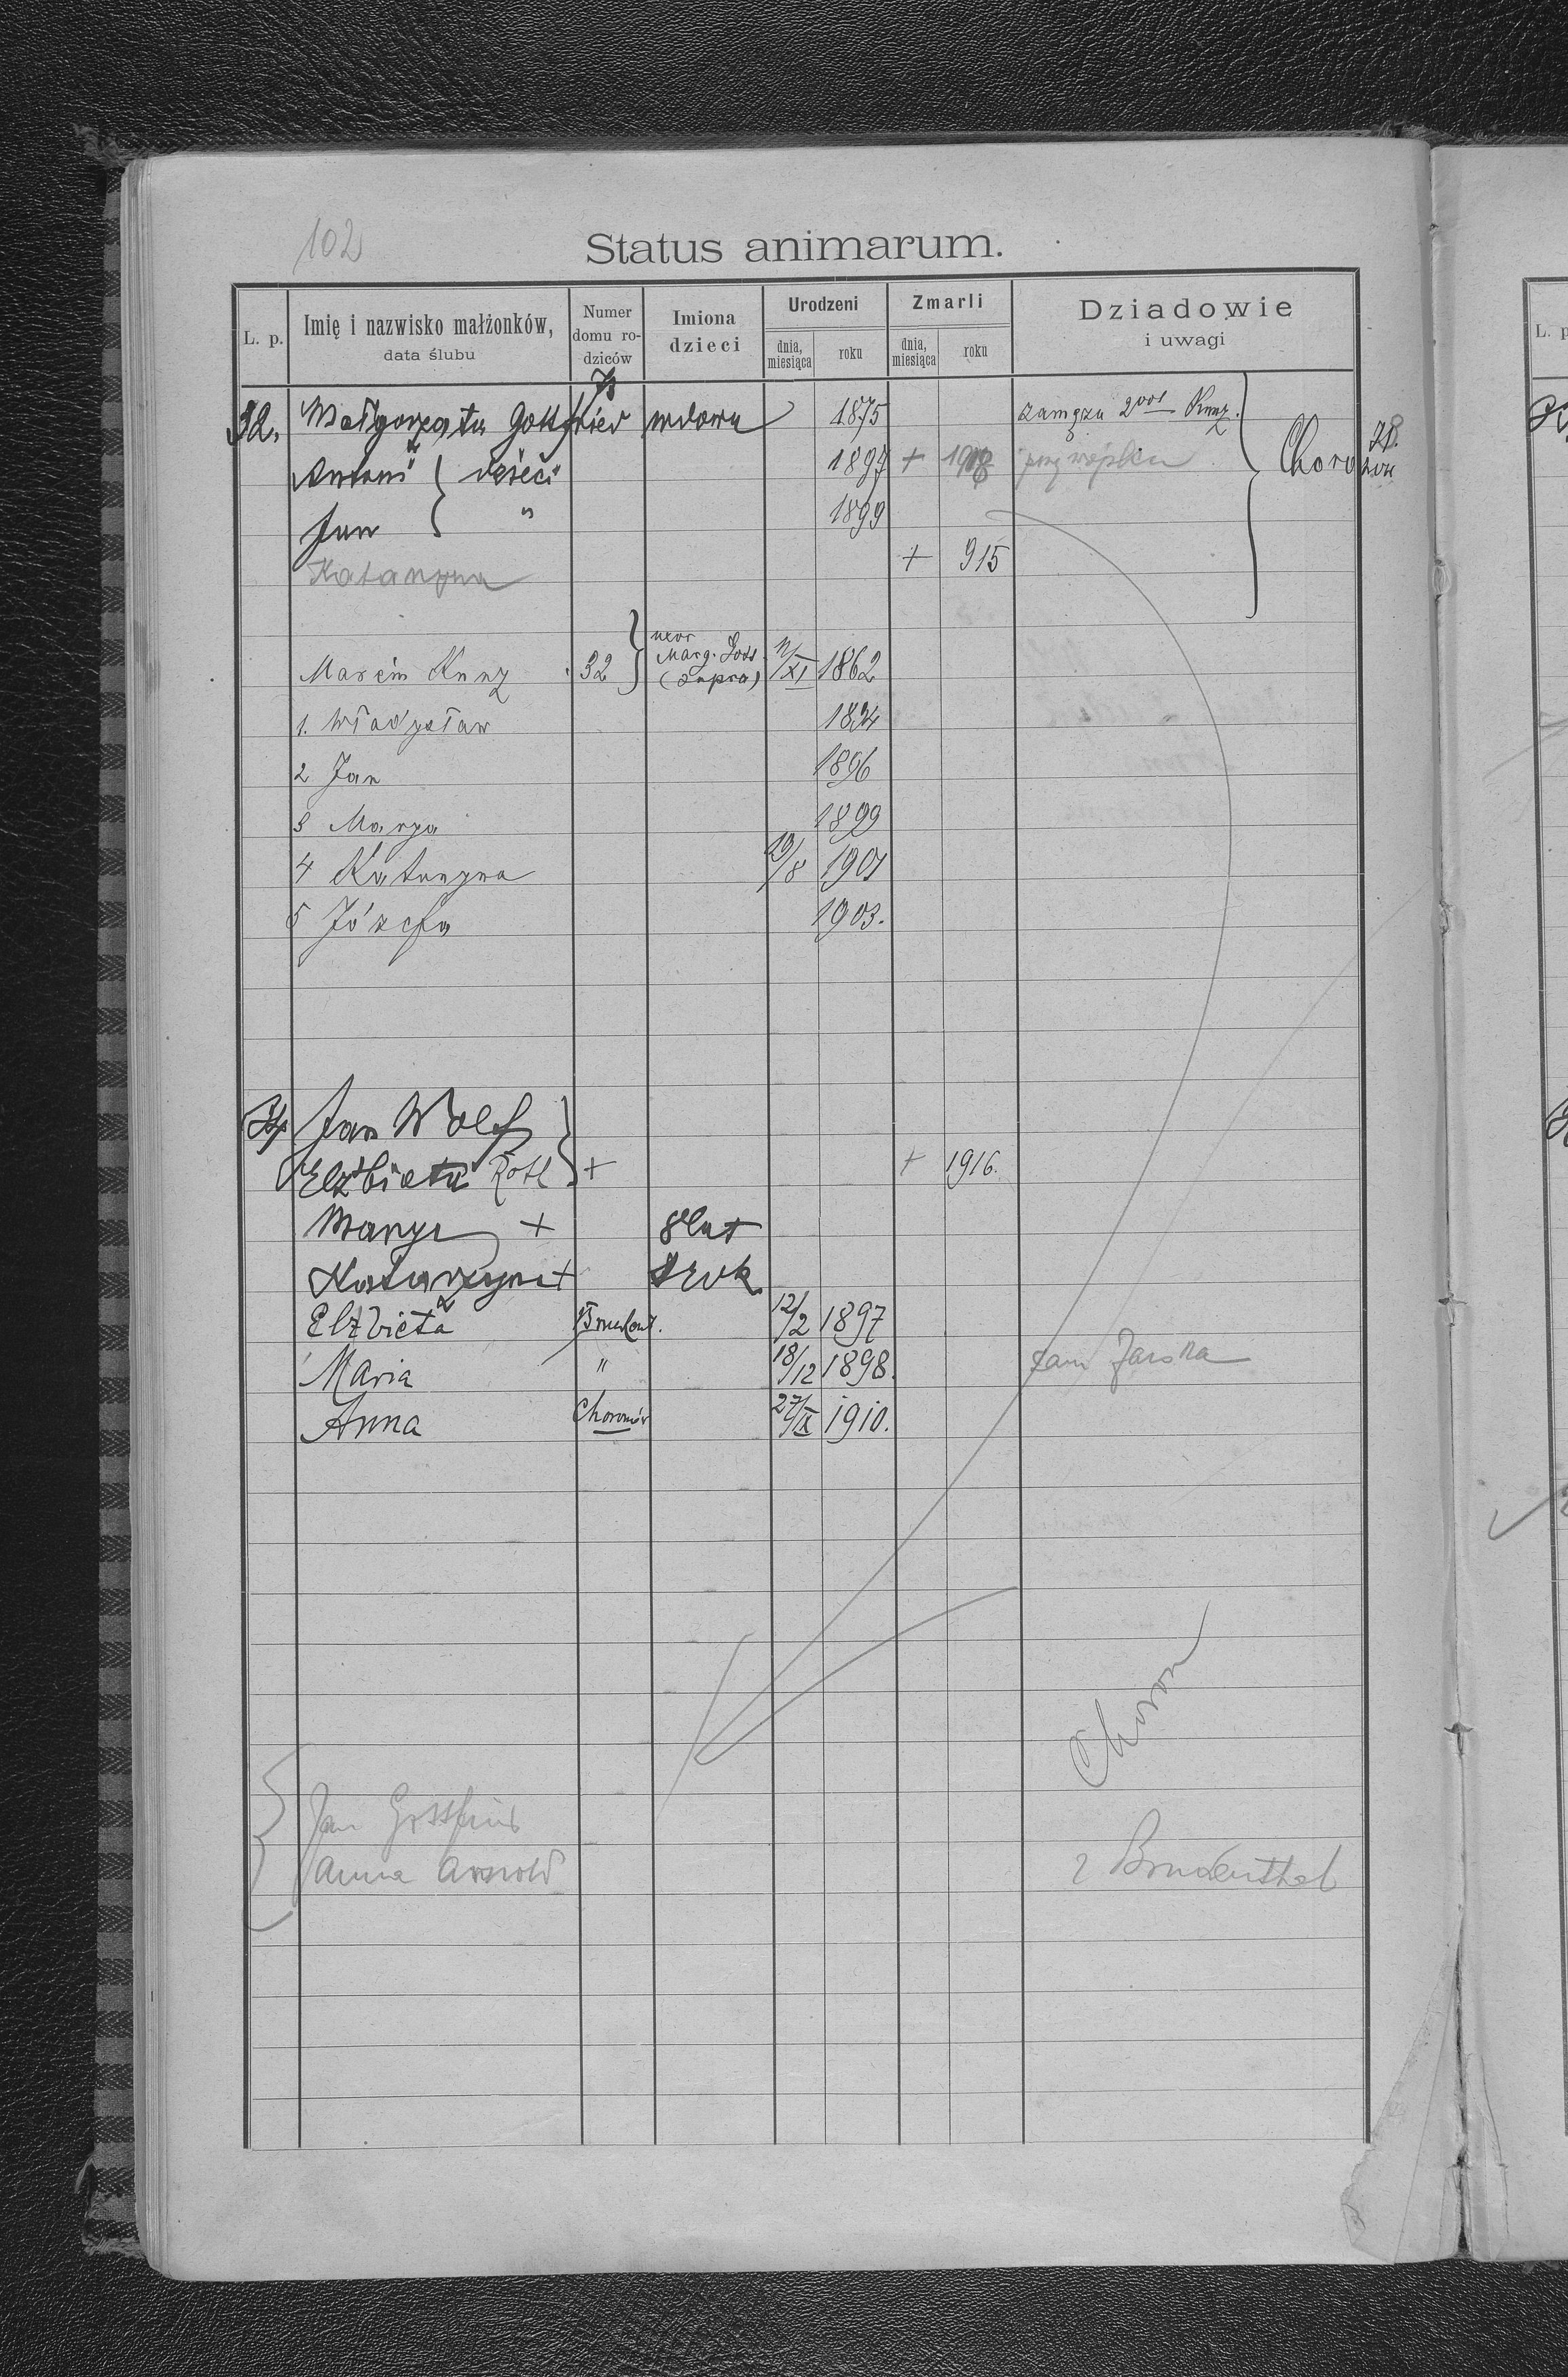 102
Status animarum.
L. p. Imię i nazwisko małżonków, data ślubu Numer domu ro- dziców Imiona dzieci Urodzeni dnia, miesiąca roku Zmarli dnia, miesiąca roku Dziadowie i uwagi
32. Małgorzata Gottfried wdowa 1875 zamęzu 2voi Kunz.
Antoni dzieci 1897 + 1918 przy wojsku
Jan " 1899
Katarzyna + 915
Marcin Kunz 32 uxor Marg. Gott. (supra) 11/XI 1862
1. Władysław 1894
2 Jan 1896
3 Marya 1899
4 Katarzyna 19/8 1901
5 Józefa 1903.
Jan Wolf
Elżbieta Rotl + + 1916.
Marya + 8 lat
Katarzyna + rok
Elżbieta 12/2 1897
Maria " 18/12 1898. zam Jarska
Anna Choronów 27/IX 1910.
Choron
Jan Gottfried
Anna Arnold z Brudenthal
L. p